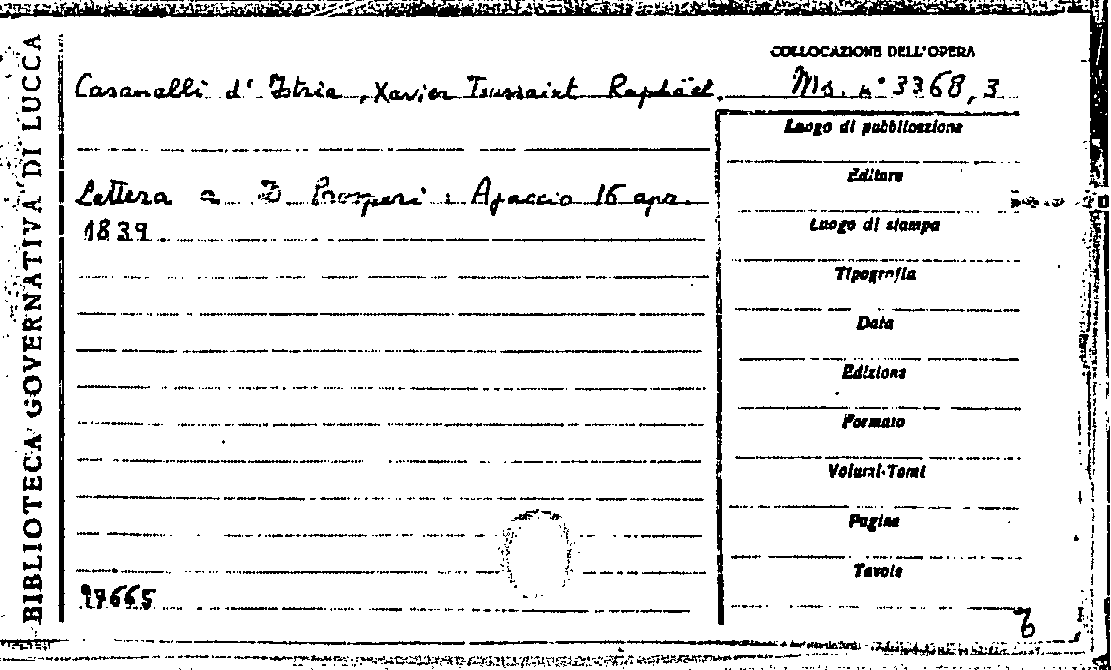 BIBLIOTECA GOVERNATIVA DI LUCCA
COLLOCAZIONE DELL'OPERA
Casanelli d'Istria, Xavier Toussaint Raphäel.
Ms. n° 3368,3
Luogo di pubblicazione
Editore
Lettera a D Prosperi : Ajaccio 16 apr.
1839
Luogo di stampa
Tipografia
Data
Edizione
Formato
Volumi-Tomi
Pagine
Tavole
97665